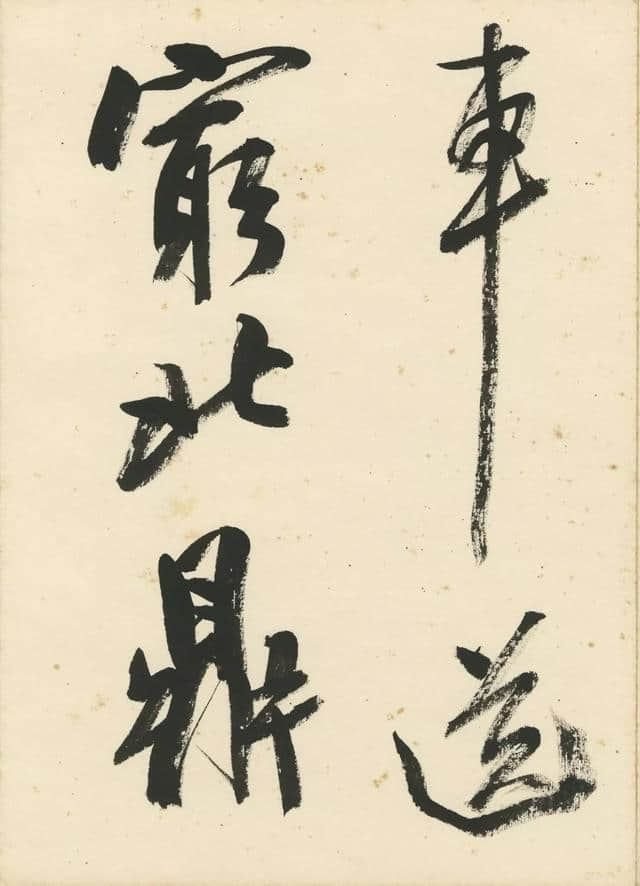 車道
窮北鼎